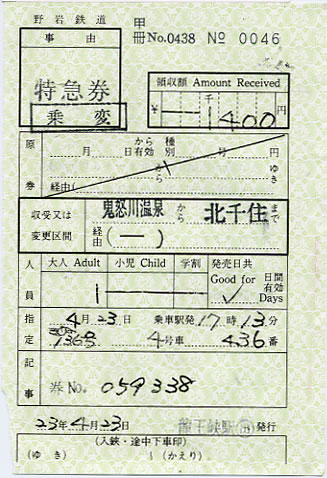 野岩鉄道 甲冊No.0438 № 0046
事由
特急券
乗変
領収額 Amount Received
千
¥ 1400 円
原券 月 日 から有効 種別 号 円
から ゆき
経由(
収受又は変更区間 鬼怒川温泉 から 北千住 まで
経由 (—)
人員 大人 Adult 小児 Child 学割 発売日共
1 Good for ✓ 日間有効 Days
指定 4月23日 乗車駅発17時13分
136号 4号車 436番
記事 券No. 059338
23年4月23日 龍王峡駅 発行
(入鋏・途中下車印)
(ゆき) (かえり)